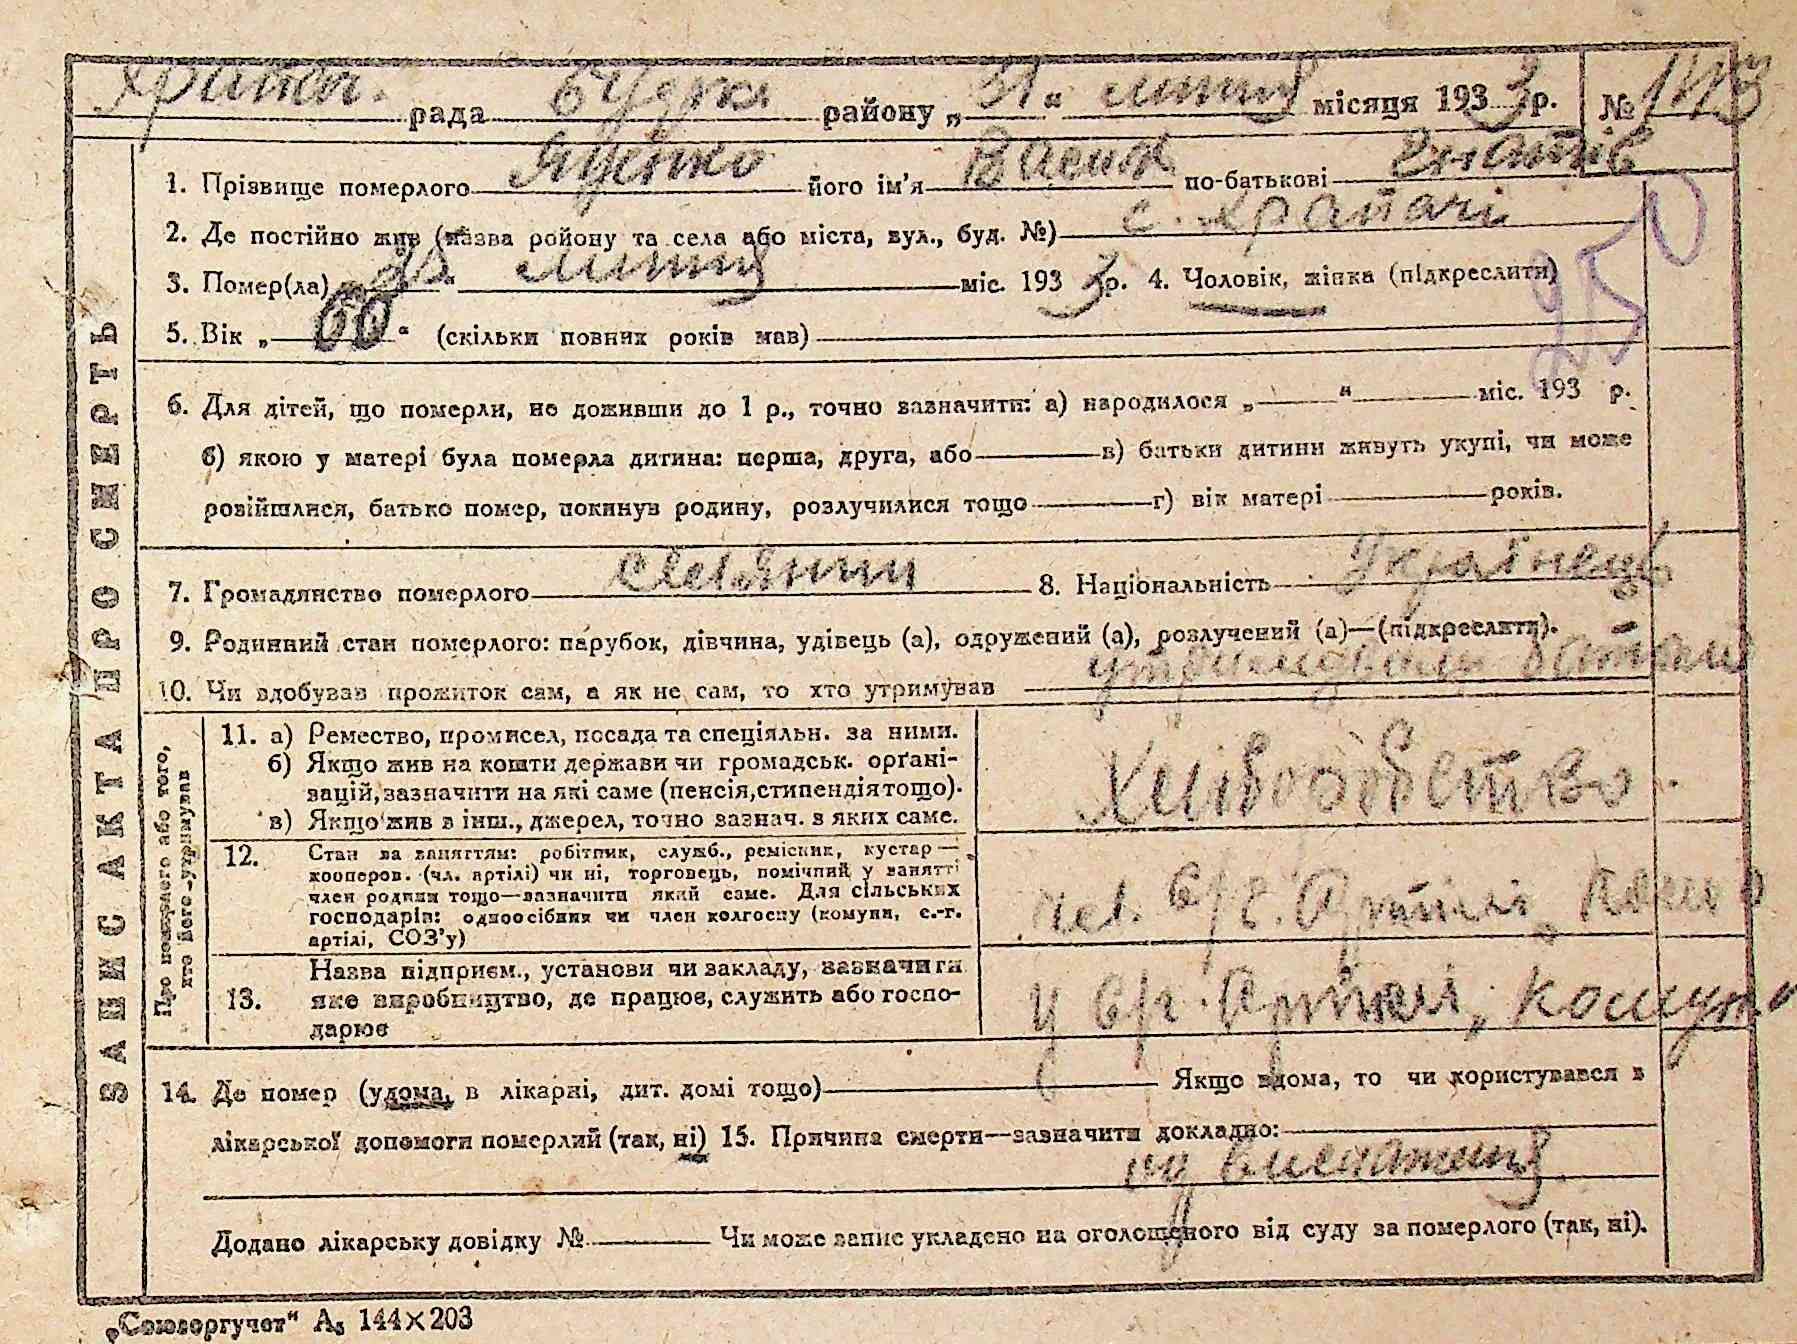 рада Будьки району „31" липня місяця 1933 р. №
1. Прізвище померлого Яценко його ім'я Василь по-батькові Гнатів
2. Де постійно жив (назва району та села або міста, вул., буд. №) с. Храпачі
3. Помер(ла) „28" липня міс. 1933 р. 4. Чоловік, жінка (підкреслити)
250
5. Вік „60" (скільки повних років мав)
6. Для дітей, що померли, не доживши до 1 р., точно зазначити: а) народилося „ " міс. 193 р.
б) якою у матері була померла дитина: перша, друга, або в) батьки дитини живуть укупі, чи може
розійшлися, батько помер, покинув родину, розлучилися тощо г) вік матері років.
7. Громадянство померлого селянин 8. Національність Українець
9. Родинний стан померлого: парубок, дівчина, удівець (а), одружений (а), розлучений (а)—(підкреслити).
10. Чи здобував прожиток сам, а як не сам, то хто утримував
ЗАПИС АКТА ПРО СМЕРТЬ
Про померлого або того, хто його утримував
11. а) Ремество, промисел, посада та спеціяльн. за ними.
б) Якщо жив на кошти держави чи громадськ. органі-
зацій, зазначити на які саме (пенсія, стипендія тощо).
в) Якщо жив з інш., джерел, точно зазнач. з яких саме.
Хліборобство
12. Стан за заняттям: робітник, служб., ремісник, кустар—
кооперов. (чл. артілі) чи ні, торговець, помічний у занятті
член родини тощо—зазначити який саме. Для сільських
господарів: одноосібник чи член колгоспу (комуни, с.-г.
артілі, СОЗ'у)
чл. с/г. Артілі
13. Назва підприєм., установи чи закладу, зазначити
яке виробництво, де працює, служить або госпо-
дарює
у с/г. Артілі
14. Де помер (удома, в лікарні, дит. домі тощо) Якщо вдома, то чи користувався з
лікарської допомоги померлий (так, ні) 15. Причина смерти—зазначити докладно:
од виснаження
Додано лікарську довідку № Чи може запис укладено на оголошеного від суду за померлого (так, ні).
„Союзоргучет" А₅ 144×203